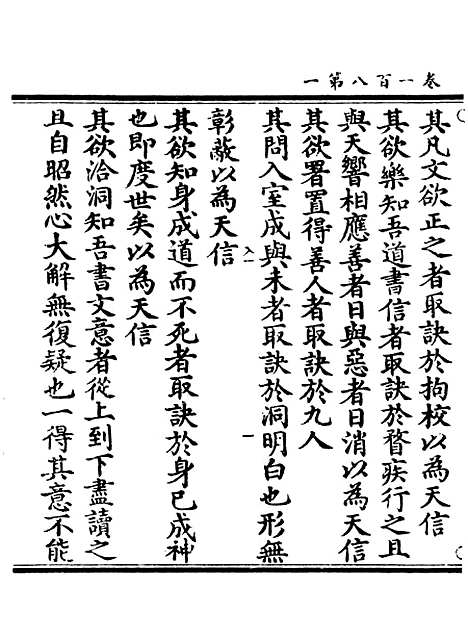 卷一百八第一
其凡文欲正之者取訣於拘校以為天信
其欲樂知吾道書信者取訣於瞀疾行之且
與天響相應善者日與惡者日消以為天信
其欲署置得善人者取訣於九人
其問入室成與未者取訣於洞明白也形無
彰蔽以為天信
其欲知身成道而不死者取訣於身已成神
也即度世矣以為天信
其欲洽洞知吾書文意者從上到下盡讀之
且自昭然心大解無復疑也一得其意不能